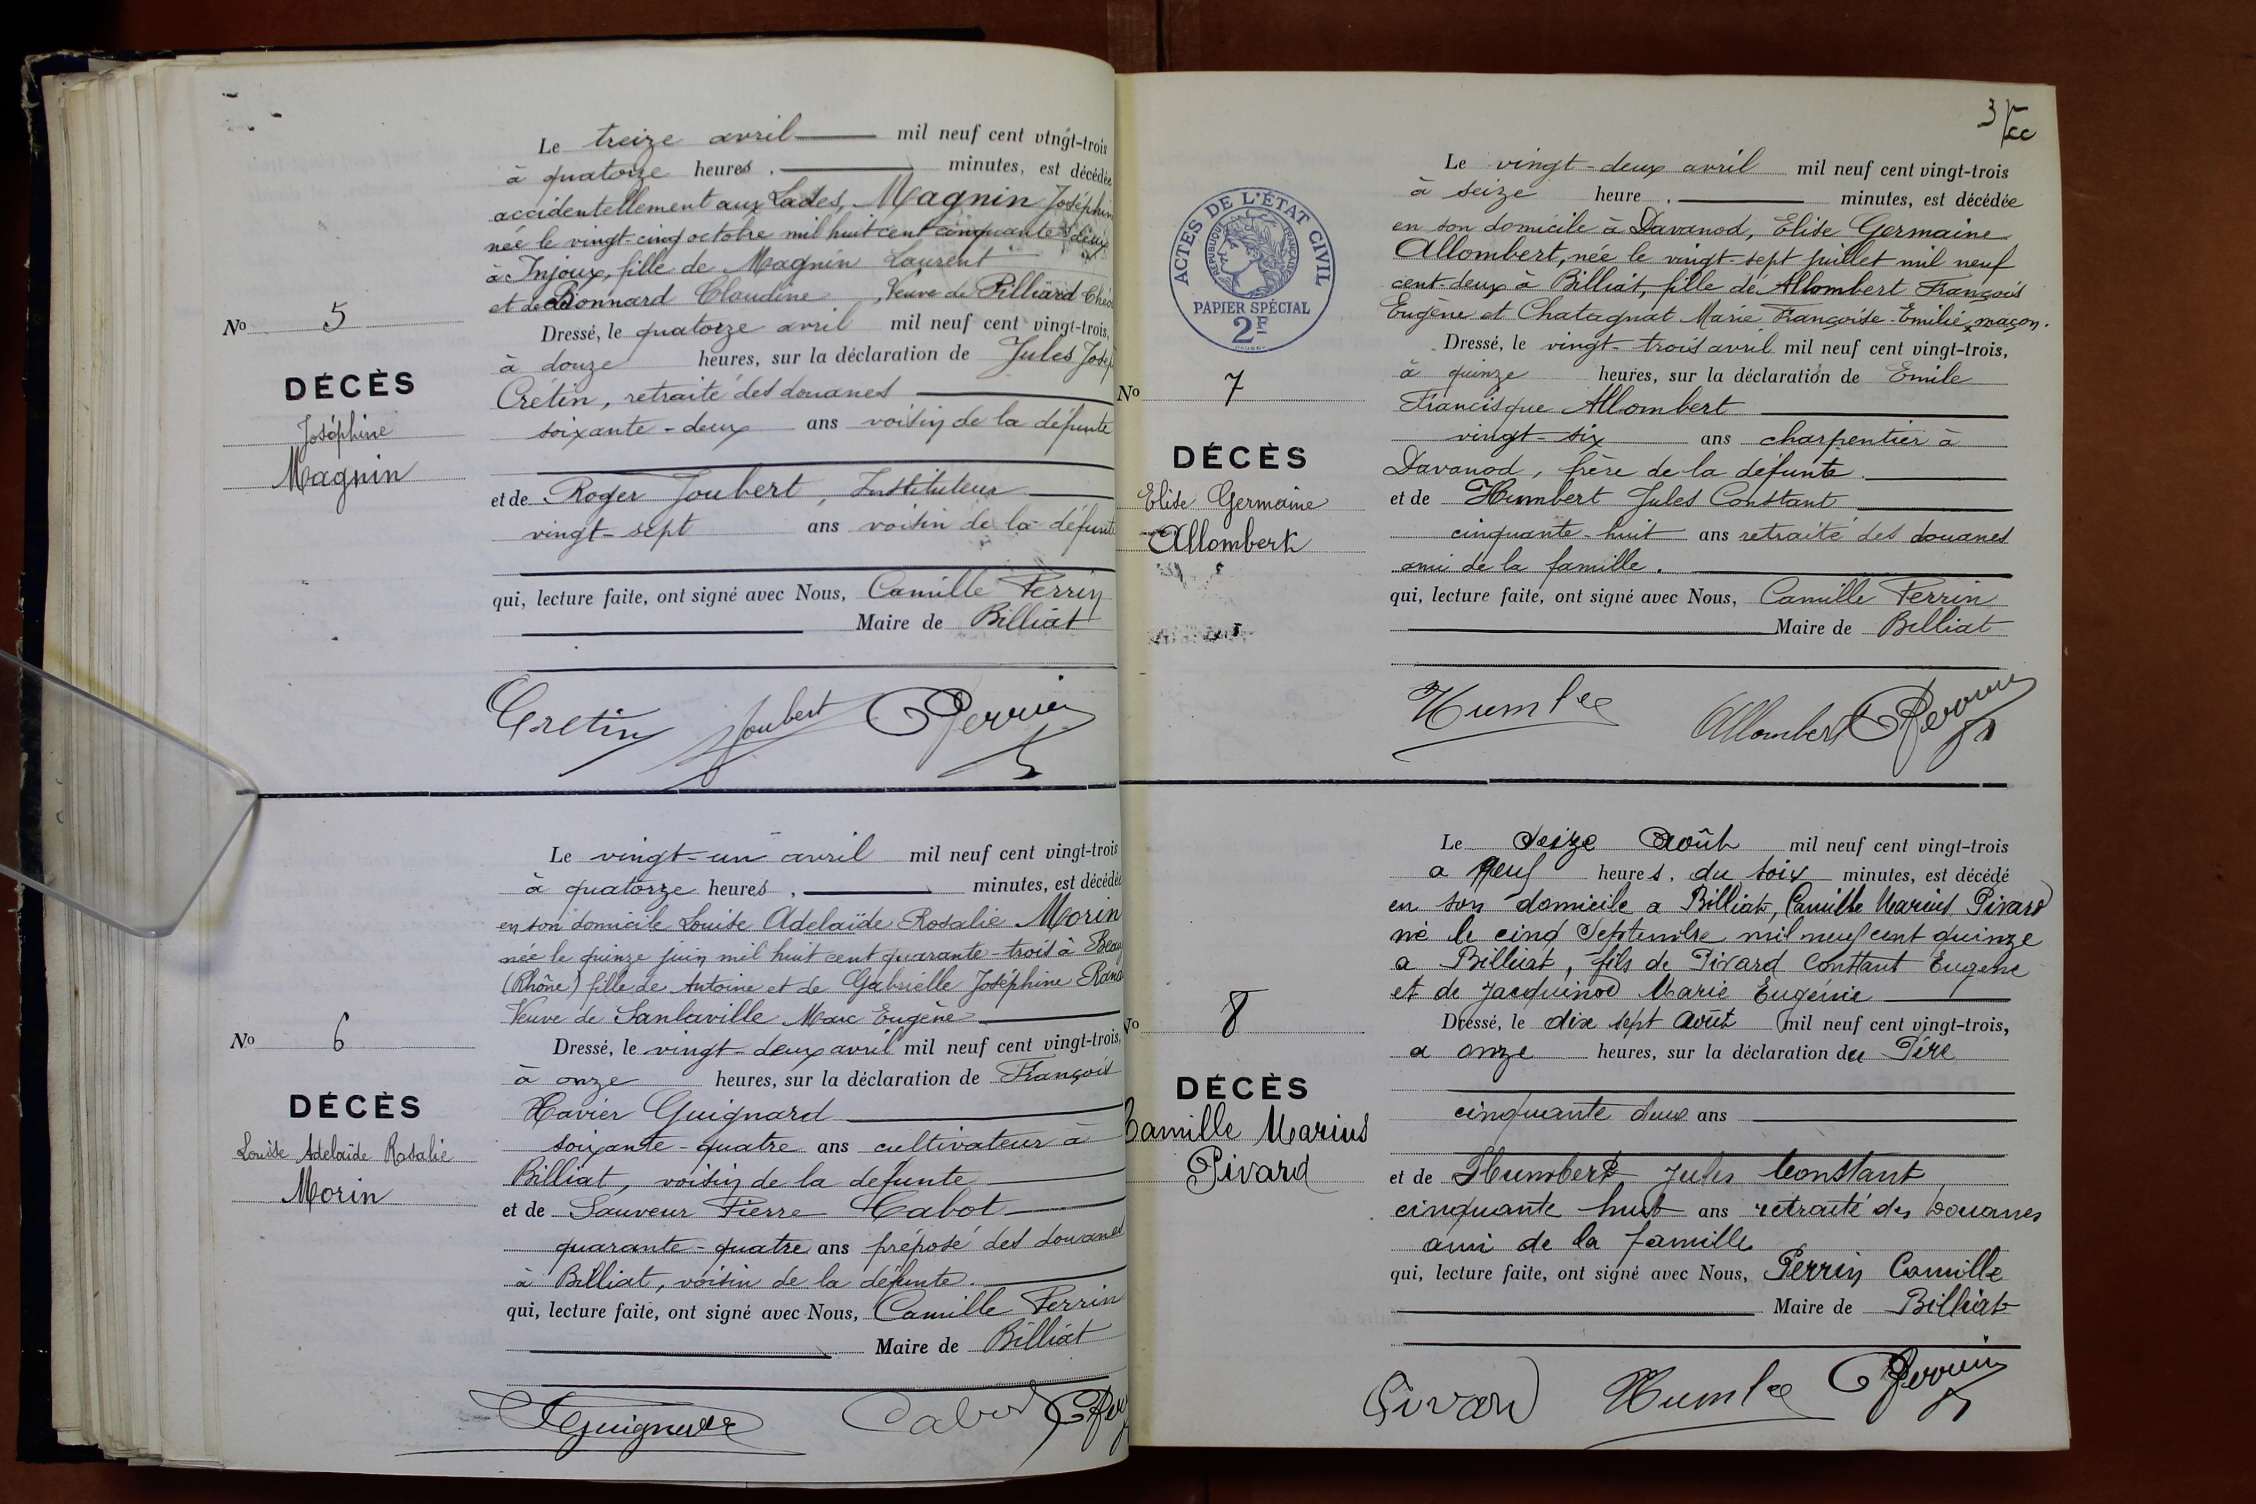 Le treize avril mil neuf cent vingt-trois
à quatorze heures. minutes, est décédée
accidentellement aux Lades, Magnin Joséphin
née le vingt-cinq octobre mil huit cent cinquante deux
à Injoux, fille de Magnin Laurent
et de Bonnard Claudine, Veuve de Pilliard
No 5
Dressé, le quatorze avril mil neuf cent vingt-trois,
à douze heures, sur la déclaration de Jules Josep
DÉCÈS
Crétin, retraité des douanes
Joséphine
soixante-deux ans voisin de la défunte
Magnin
et de Roger Joubert, Instituteur
vingt-sept ans voisin de la défunte
qui, lecture faite, ont signé avec Nous, Camille Perrin
Maire de Billiat
Cretin Joubert CPerrin
Le vingt-un avril mil neuf cent vingt-trois
à quatorze heures. minutes, est décédée
en son domicile Louise Adelaïde Rosalie Morin
née le quinze juin mil huit cent quarante-trois à Beauj
(Rhône) fille de Antoine et de Gabrielle Joséphine
Veuve de Sanlaville Marc Eugène
No 6
Dressé, le vingt-deux avril mil neuf cent vingt-trois,
à onze heures, sur la déclaration de François
DÉCÈS
Xavier Guignard
Louise Adelaïde Rosalie
soixante-quatre ans cultivateur à
Billiat, voisin de la défunte
Morin
et de Sauveur Pierre Cabot
quarante-quatre ans préposé des douanes
à Billiat, voisin de la défunte.
qui, lecture faite, ont signé avec Nous, Camille Perrin
Maire de Billiat
Guignard Cabot CPer
3
ACTES DE L'ÉTAT CIVIL
RÉPUBLIQUE FRANÇAISE
PAPIER SPÉCIAL
2F
Le vingt-deux avril mil neuf cent vingt-trois
à seize heure. minutes, est décédée
en son domicile à Davanod, Elise Germaine
Allombert, née le vingt-sept juillet mil neuf
cent-deux à Billiat, fille de Allombert François
Eugène et Chatagnat Marie Françoise Emilie, maçon.
Dressé, le vingt-trois avril mil neuf cent vingt-trois,
à quinze heures, sur la déclaration de Emile
No 7
Francisque Allombert
vingt-six ans charpentier à
DÉCÈS
Davanod, frère de la défunte.
Elise Germaine
et de Humbert Jules Constant
Allombert
cinquante-huit ans retraité des douanes
ami de la famille.
qui, lecture faite, ont signé avec Nous, Camille Perrin
Maire de Billiat
Humbe Allombert CPerrin
Le seize Août mil neuf cent vingt-trois
a neuf heures. du soir minutes, est décédé
en son domicile a Billiat, Camille Marius Pivard
né le cinq Septembre mil neuf cent quinze
a Billiat, fils de Pivard Constant Eugene
et de Jacquinod Marie Eugénie
No 8
Dressé, le dix sept Août mil neuf cent vingt-trois,
a onze heures, sur la déclaration du Père
DÉCÈS
Camille Marius
cinquante deux ans
Pivard
et de Humbert Jules Constant
cinquante huit ans retraité des Douanes
ami de la famille
qui, lecture faite, ont signé avec Nous, Perrin Camille
Maire de Billiat
Pivard Humbe CPerrin